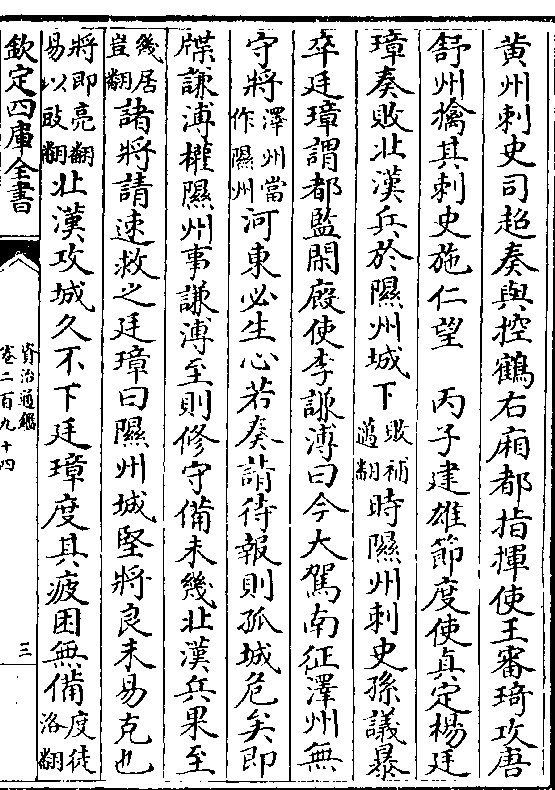 黄州刺史司超奏與控鶴右廂都指揮使王審琦攻唐
舒州擒其刺史施仁望　丙子建雄節度使真定楊廷
璋奏敗北漢兵於隰州城下敗補邁翻時隰州刺史孫議暴
卒廷璋謂都監閑廐使李謙溥曰今大駕南征澤州無
守將澤州當作隰州河東必生心若奏請待報則孤城危矣即
牒謙溥權隰州事謙溥至則修守備未幾北漢兵果至
幾居豈翻諸將請速救之廷璋曰隰州城堅將良未易克也
將即亮翻易以豉翻北漢攻城久不下廷璋度其疲困無備度徒洛翻
欽定四庫全書
資治通鑑
卷二百九十四
三